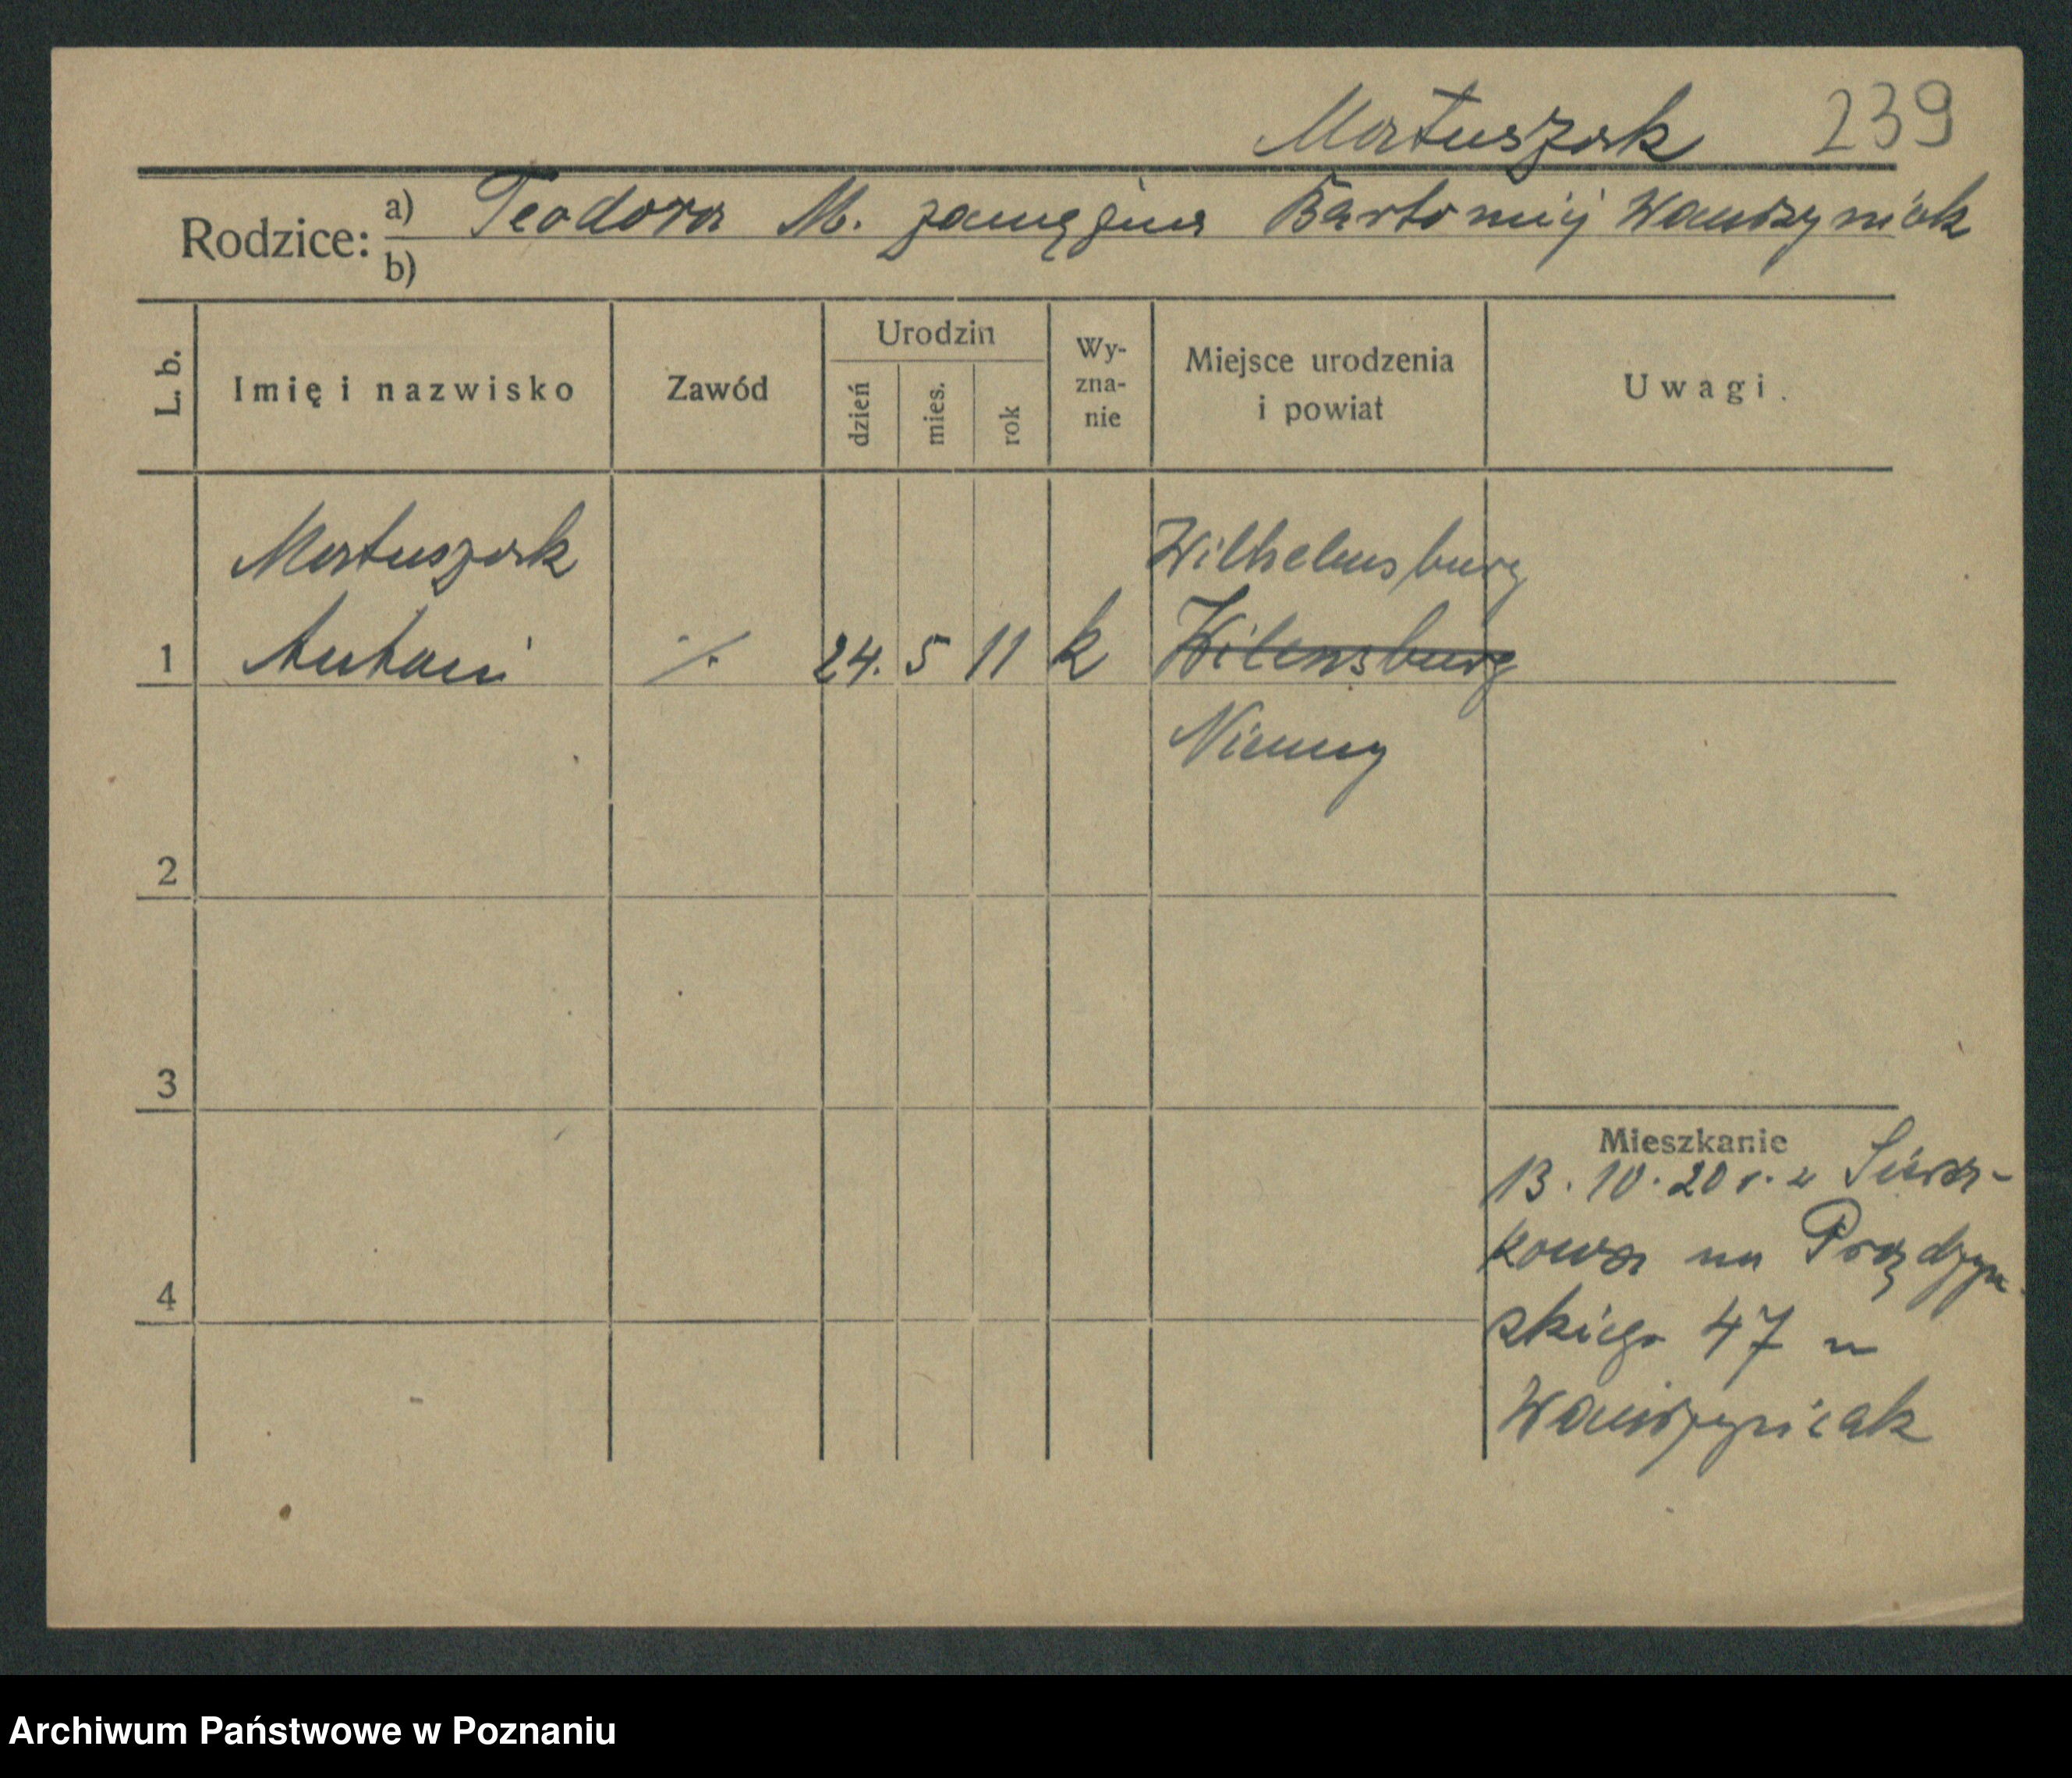 Matuszak 239
Rodzice: a) Teodora M. zamężna Bartomiej Wawrzyniak
b)
L. b. Imię i nazwisko Zawód Urodzin dzień mies. rok Wy-zna-nie Miejsce urodzenia i powiat Uwagi.
Matuszak Wilhelmsburg
1 Antoni ⁒ 24. 5 11 k Wilensburg
Niemcy
2
3
Mieszkanie
13. 10. 20 r. z
kowa na Prądzyń-
4
skiego 47 u
Wawrzyniak
Archiwum Państwowe w Poznaniu